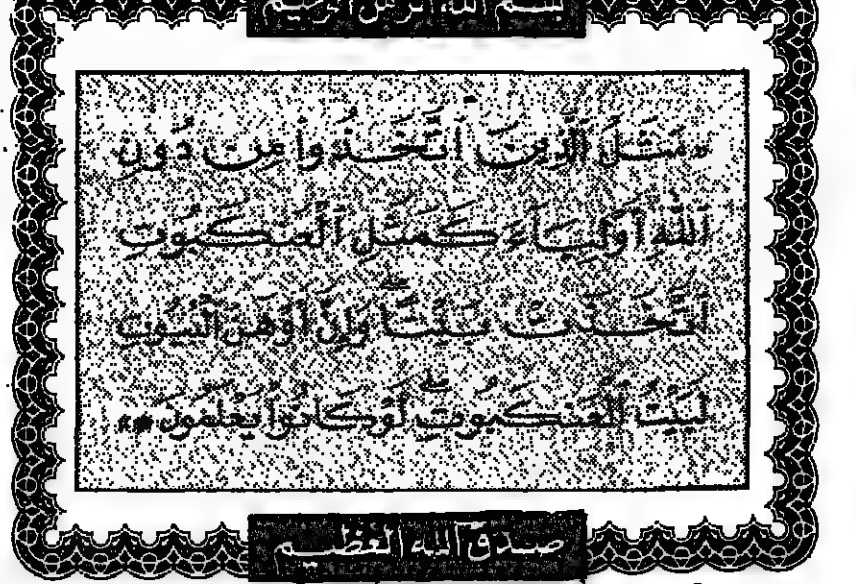 بسم الله الرحمن الرحيم
«مَثَلُ ٱلَّذِينَ ٱتَّخَذُوا۟ مِن دُونِ
ٱللَّهِ أَوْلِيَآءَ كَمَثَلِ ٱلْعَنكَبُوتِ
ٱتَّخَذَتْ بَيْتًا ۖ وَإِنَّ أَوْهَنَ ٱلْبُيُوتِ
لَبَيْتُ ٱلْعَنكَبُوتِ ۖ لَوْ كَانُوا۟ يَعْلَمُونَ»
صدق الله العظيم